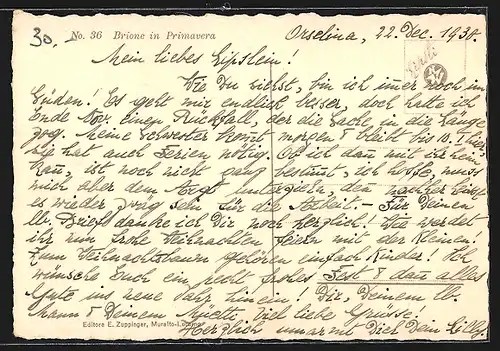 30.
No. 36 Brione in Primavera
Orselina, 22. Dez. 1930.
Mein liebes
Wie Du siehst, bin ich immer noch im
Süden! Es geht mir endlich besser, doch hatte ich
Ende Nov. einen Rückfall, der die Sache in die Länge
zog. Meine Schwester kommt morgen & bleibt bis 10. I. hier,
sie hat auch Ferien nötig. Ob ich dann mit ihr heim
kann, ist noch nicht ganz bestimmt, ich hoffe, muss
mich aber dem Arzt
es wieder sein für die Arbeit. – Für Deinen
lb. Brief danke ich Dir noch herzlich! Wie werdet
ihr nun frohe Weihnachten feiern mit der Kleinen!
Zum Weihnachtsbaum gehören einfach Kinder! Ich
wünsche Euch ein recht frohes Fest & dann alles
Gute ins neue Jahr hinein! Dir, Deinem lb.
Mann & Deinem viel liebe Grüsse!
Editore E. Zuppinger, Muralto-Locarno
Herzlich umarmt Dich Dein Lilly